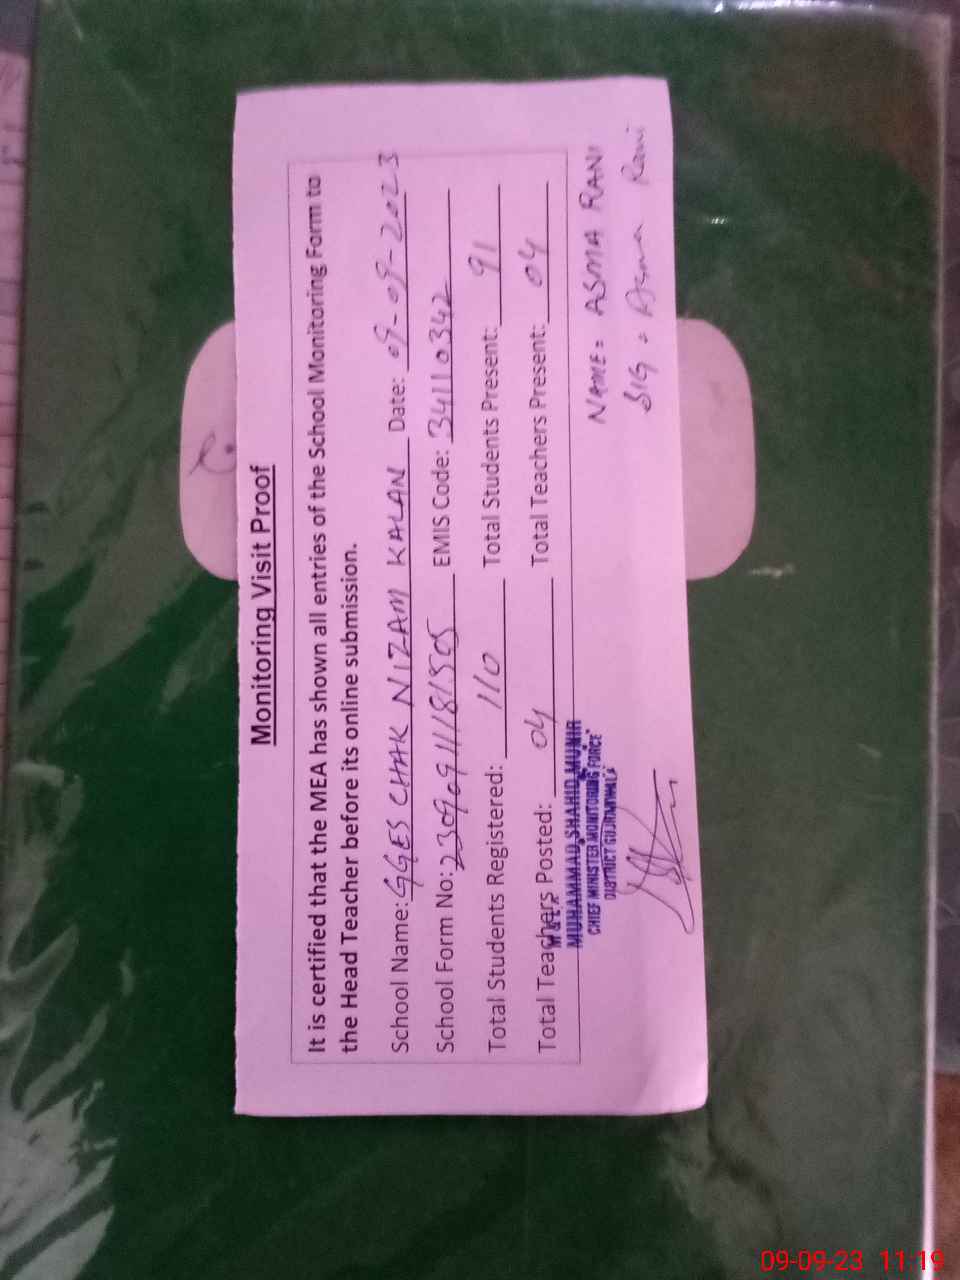 Monitoring Visit Proof
It is certified that the MEA has shown all entries of the School Monitoring Form to
the Head Teacher before its online submission.
School Name: GGES CHAK NIZAM KALAN Date: 09-09-2023
School Form No: 23090911181505 EMIS Code: 34110342
Total Students Registered: 110 Total Students Present: 91
Total Teachers Posted: 04 Total Teachers Present: 04
MUHAMMAD SHAHID MUNIR
CHIEF MINISTER MONITORING FORCE
DISTRICT GUJRANWALA
NAME = ASMA RANI
SIG = Asma Rani
09-09-23 11:19